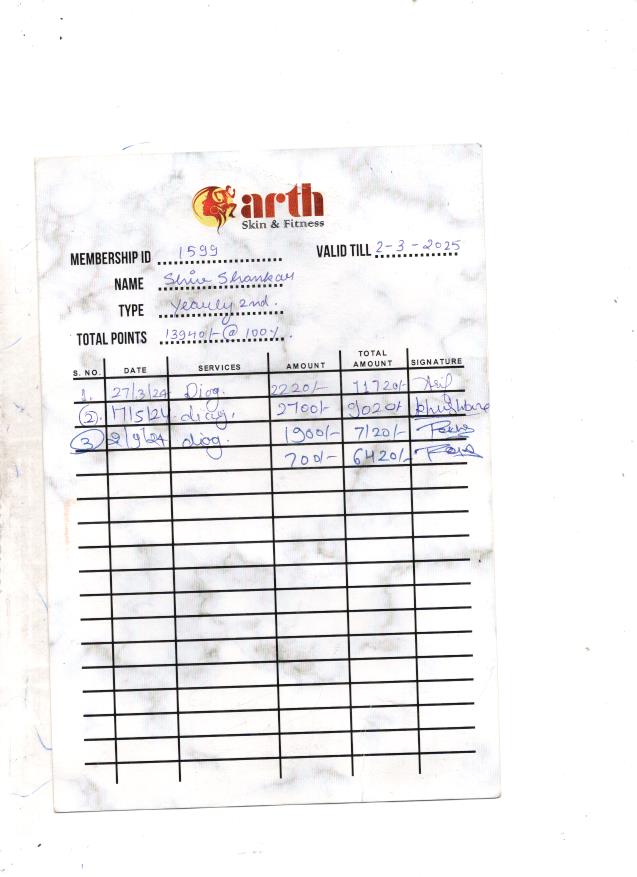 arth
Skin & Fitness
MEMBERSHIP ID 1599 VALID TILL 2-3-2025
NAME Shiv Shankar
TYPE Yearly 2nd.
TOTAL POINTS 13940/- @ 100%.
S. NO. DATE SERVICES AMOUNT TOTAL AMOUNT SIGNATURE
1. 27/3/24 Diag. 2220/- 11720/-
2. 17/5/24 diag. 2700/- 9020/-
3 2/9/24 diag. 1900/- 7120/-
700/- 6420/-